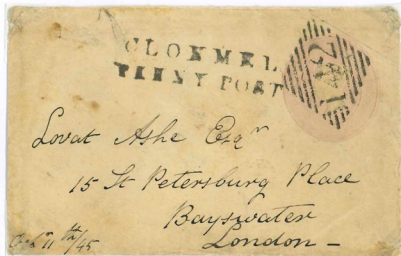 CLONMEL
PENNY POST
142
Lovat Ashe Esqr
15 St Petersburg Place
Bayswater
London –
11th/45